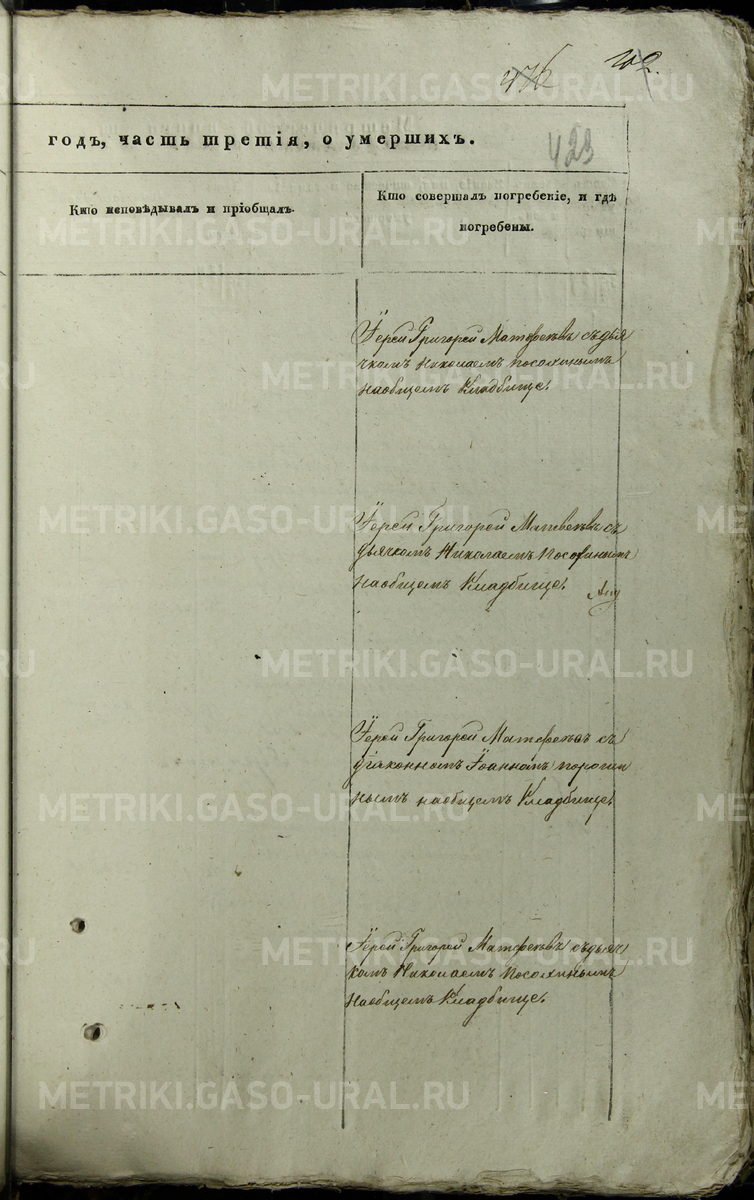 423
годъ, часть третія, о умершихъ.
Кто исповѣдывалъ и пріобщалъ.
Кто совершалъ погребеніе, и гдѣ
погребены.
Ӱерей Григорей Матфеевъ съ дья
чкомъ Николаемъ Посохинымъ
наобщемъ Кладбище.
Ӱерей Григорей Матвеевъ съ
дьячкомъ Николаемъ Посохинымъ
наобщемъ Кладбище.
Ӱерей Григорей Матфеевъ съ
діякономъ Іоанномъ
нымъ наобщемъ Кладбище.
Ӱерей Григорей Матфеевъ съ дьяч
комъ Николаемъ Посохинымъ
наобщемъ Кладбище.
METRIKI.GASO-URAL.RU